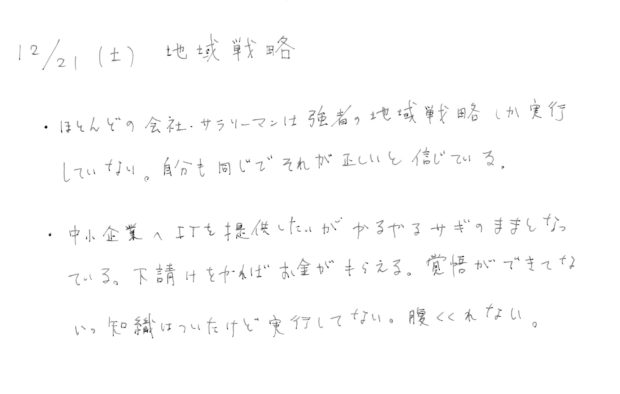 12/21 (土) 地域戦略
・ほとんどの会社・サラリーマンは強者の地域戦略しか実行
していない。自分も同じでそれが正しいと信じている。
・中小企業へITを提供したいがかるやるサギのままとなっ
ている。下請けをやればお金がもらえる。覚悟ができてな
い。知識はついたけど実行してない。腹くくれない。